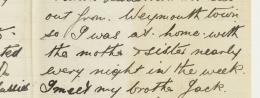 out from. Weymouth town
so I was at home with
the mothe & sisters nearly
every night in the week.
I meet my brothe Jack.